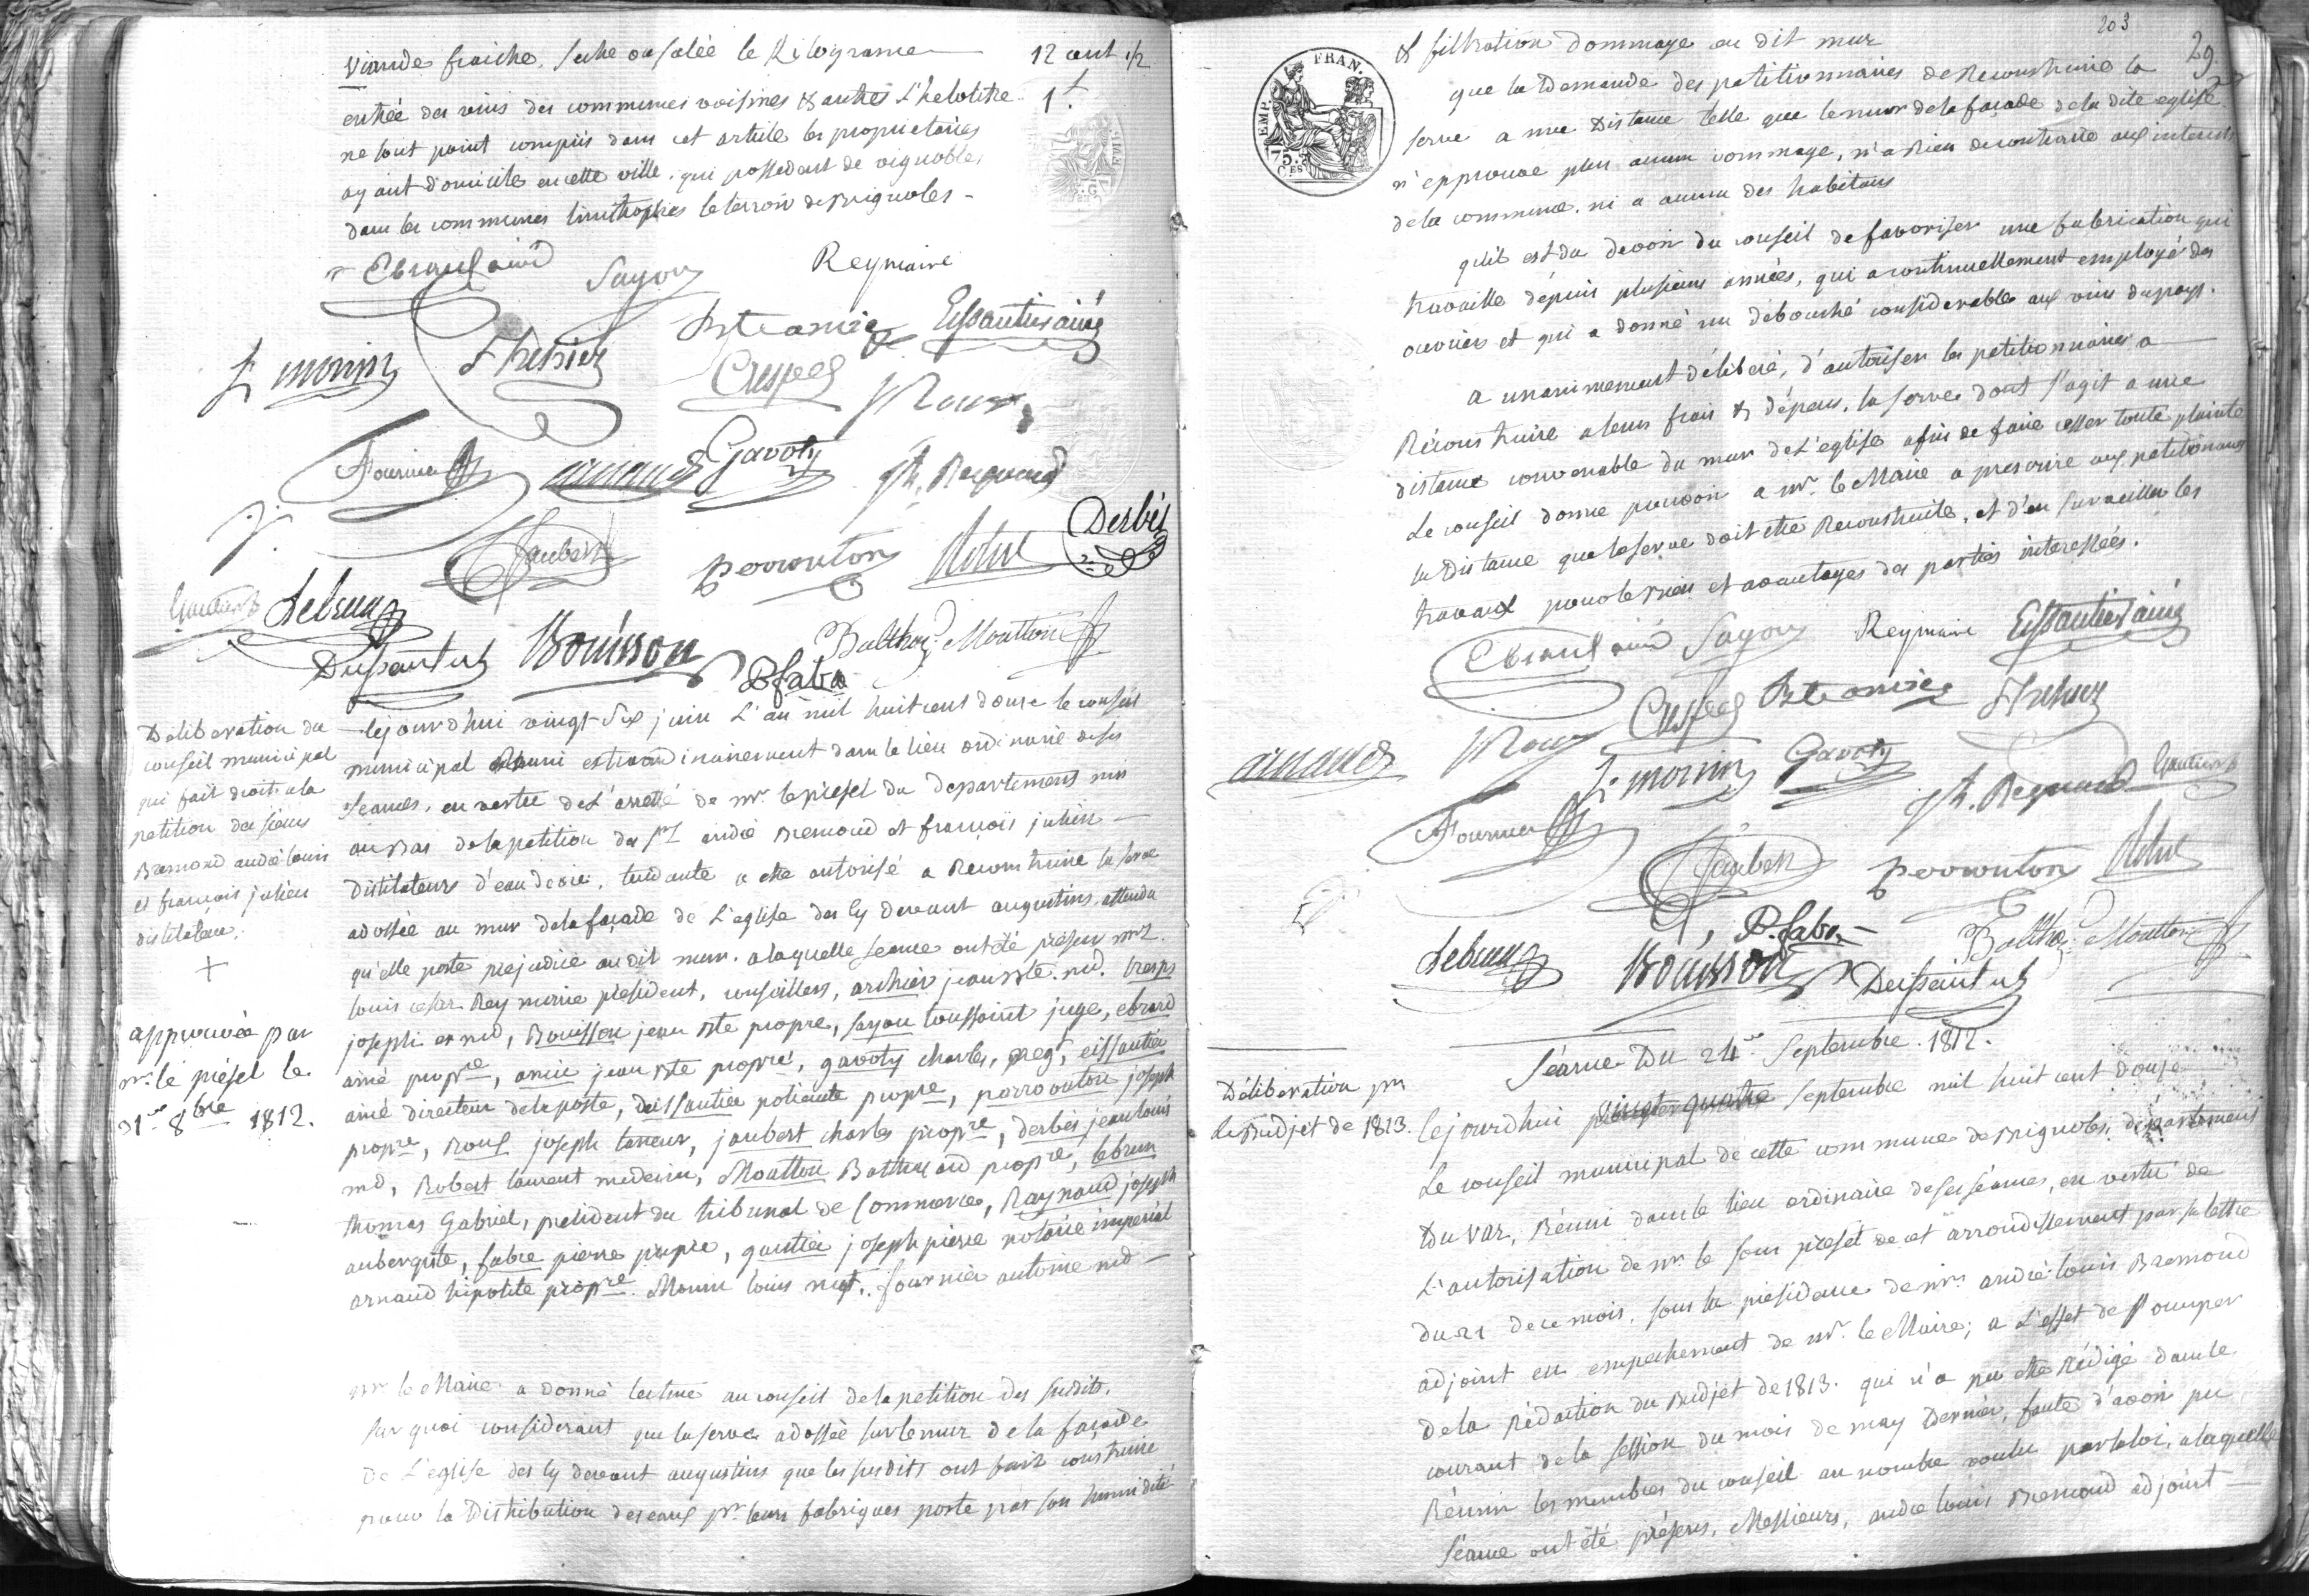 viande fraiche, seche ou salée le Kilograme — 12 cent 1/2
entrée des vins des communes voisines & autres l'hectolitre 1 f.
ne sont point compris dans cet article les proprietaires
ayant domicile en cette ville, qui possedent de vignobles
dans les communes limitrophes le terroir de Brignoles -
Ebrard ainé Sayou Reymoire
Bte amic Eissautier ainé
L monin Crespel JRoux
Fournier arnaud Gavoty Jh. Reynaud
Jaubert perrouton Derbès
Gautier Lebrun
Deissautier Bouisson Balthard Moutton
P fabre
Déliberation du
conseil municipal
qui fait droit a la
petition des sieurs
Bremond andré louis
et francois julien
distilateur.
+
approuvée par
mr. le préfet le
21 8bre 1812.
cejourd'hui vingt-six juin l'an mil huit cent douze le conseil
municipal Réuni extraordinairement dans le lieu ordinaire de ses
séances, en vertu de l'arrêté de mr. le préfet du departement mis
au bas de la petition des srs andré Bremond et françois julien —
Distilateurs d'eau de vie, tendante a etre autorisé a Reconstruire la serve
adossée au mur de la façade de l'eglise des cy devant augustins, attendu
qu'elle porte prejudice audit mur. a laquelle seance ont été présens mrs.
louis cesar Reymoire président, conseillers, archier jean Bte. nd. Cresps
joseph nd, Bouisson jean Bte propre, sayou toussaint juge, ebrard
ainé propre, amic jean Bte propre, gavoty charles, neg, eissautier
ainé directeur de la poste, deissautier policarpe propre, perrouton joseph
propre, Roux joseph taneur, jaubert charles propre, derbès jean louis
nd, Robert laurent medecin, Moutton Balthazard propre, lebrun
thomas Gabriel, président du tribunal de Commerce, Raynaud joseph
aubergiste, fabre pierre propre, gautier joseph pierre notaire imperial
arnaud hipolite propre. Monin louis negt. fournier antoine nd —
mr le Maire a donné lecture au conseil de la petition des susdits,
sur quoi considerant que la serve adossée sur le mur de la façade
de l'eglise des cy devant augustins que les susdits ont fait construire
pour la Distribution des eaux pr. leurs fabriques porte par son humidité
203
29
EMP. FRAN.
75. CES
& filtration dommage au dit mur
que la Demande des petitionnaires de Reconstruire la
serve a une Distance telle que le mur de la façade de la dite eglise
n'epprouve plus aucun dommage, n'a Rien de contraire aux interets
de la commune, ni a aucun des habitans
qu'il est du devoir du conseil de favoriser une fabrication qui
travaille depuis plusieurs années, qui a continuellement employé des
ouvriers et qui a donné un débouché considerable aux vins du pays.
a unanimement délibéré, d'autoriser les petitionnaires a —
Réconstruire a leurs frais & dépens, la serve dont s'agit a une
distance convenable du mur de l'eglise afin de faire cesser toute plainte
Le conseil donne pouvoir a mr. le Maire a prescrire aux petitionaires
la Distance que la serve doit etre Reconstruite, et d'en surveiller les
travaux pour le bien et avantages des parties interessées.
Ebrard ainé Sayou Reymoire Eissautier ainé
Crespel Bte amic
arnaud JRoux L monin Gavoty
Fournier Jh. Reynaud Gautier
Jaubert perrouton
Lebrun P. fabre Balthard Moutton
Bouisson Deissautier
Séance Du 24e Septembre 1812.
Déliberation pr
le Budjet de 1813.
Cejourd'hui vingt quatre Septembre mil huit cent douze
Le conseil municipal de cette commune de Brignoles, département
Du var, Réuni dans le lieu ordinaire de ses séances, en vertu de
L'autorisation de mr. le sous préfet de cet arrondissement par sa lettre
du 21 de ce mois, sous la présidence de mr. andré louis Bremond
adjoint en empechement de mr. le Maire; a l'effet de s'occuper
de la Rédaction du Budjet de 1813. qui n'a pu etre Rédigé dans le
courant de la session du mois de may Dernier, faute d'avoir pu
Réunir les membres du conseil au nombre voulu par la loi, a laquelle
séance ont été présens, Messieurs, andré louis Bremond adjoint —